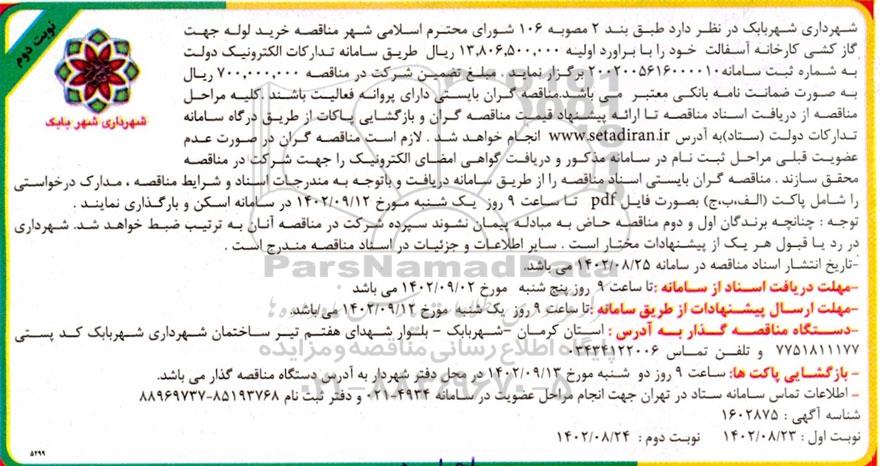 نوبت دوم
شهرداری شهر بابک
شهرداری شهربابک در نظر دارد طبق بند ۲ مصوبه ۱۰۶ شورای محترم اسلامی شهر مناقصه خرید لوله جهت
گاز کشی کارخانه آسفالت خود را با براورد اولیه ۱۳,۸۰۶,۵۰۰,۰۰۰ ریال طریق سامانه تدارکات الکترونیک دولت
به شماره ثبت سامانه ۲۰۰۲۰۰۵۶۱۶۰۰۰۰۱۰ برگزار نماید. مبلغ تضمین شرکت در مناقصه ۷۰۰,۰۰۰,۰۰۰ ریال
به صورت ضمانت نامه بانکی معتبر می باشد.مناقصه گران بایستی دارای پروانه فعالیت باشند. کلیه مراحل
مناقصه از دریافت اسناد مناقصه تا ارائه پیشنهاد قیمت مناقصه گران و بازگشایی پاکات از طریق درگاه سامانه
تدارکات دولت (ستاد)به آدرس www.setadiran.ir انجام خواهد شد . لازم است مناقصه گران در صورت عدم
عضویت قبلی مراحل ثبت نام در سامانه مذکور و دریافت گواهی امضای الکترونیک را جهت شرکت در مناقصه
محقق سازند . مناقصه گران بایستی اسناد مناقصه را از طریق سامانه دریافت و باتوجه به مندرجات اسناد و شرایط مناقصه ، مدارک درخواستی
را شامل پاکت (الف،ب،ج) بصورت فایل pdf تا ساعت ۹ روز یک شنبه مورخ ۱۴۰۲/۰۹/۱۲ در سامانه اسکن و بارگذاری نمایند .
توجه : چنانچه برندگان اول و دوم مناقصه حاضر به مبادله پیمان نشوند سپرده شرکت در مناقصه آنان به ترتیب ضبط خواهد شد. شهرداری
در رد یا قبول هر یک از پیشنهادات مختار است . سایر اطلاعات و جزئیات در اسناد مناقصه مندرج است .
-تاریخ انتشار اسناد مناقصه در سامانه ۱۴۰۲/۰۸/۲۵ می باشد.
-مهلت دریافت اسناد از سامانه :تا ساعت ۹ روز پنج شنبه مورخ ۱۴۰۲/۰۹/۰۲ می باشد
-مهلت ارسال پیشنهادات از طریق سامانه :تا ساعت ۹ روز یک شنبه مورخ ۱۴۰۲/۰۹/۱۲ می/باشد.
-دستگاه مناقصه گذار به آدرس : استان کرمان -شهربابک - بلوار شهدای هفتم تیر ساختمان شهرداری شهربابک کد پستی
۷۷۵۱۸۱۱۱۷۷ و تلفن تماس ۰۳۴۳۴۱۲۲۰۰۶
- بازگشایی پاکت ها: ساعت ۹ روز دو شنبه مورخ ۱۴۰۲/۰۹/۱۳ در محل دفتر شهردار به آدرس دستگاه مناقصه گذار می باشد.
- اطلاعات تماس سامانه ستاد در تهران جهت انجام مراحل عضویت در سامانه ۴۹۳۴-۰۲۱ و دفتر ثبت نام ۸۵۱۹۳۷۶۸-۸۸۹۶۹۷۳۷
شناسه آگهی : ۱۶۰۲۸۷۵
نوبت اول : ۱۴۰۲/۰۸/۲۳ نوبت دوم : ۱۴۰۲/۰۸/۲۴
۵۲۹۹
ParsNamadData
پایگاه اطلاع رسانی مناقصه و مزایده
۰۲۱-۸۸۳۴۹۶۷۰-۵